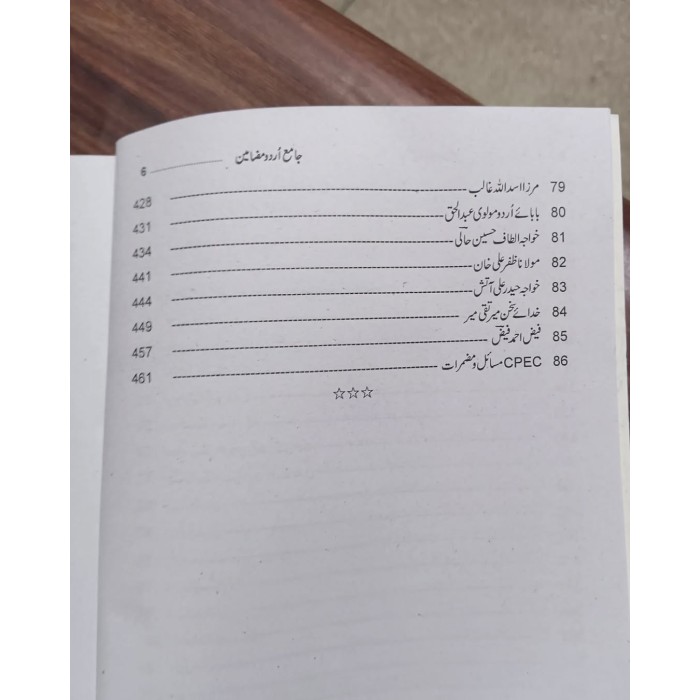 جامع اُردو مضامین 6
79 مرزا اسد اللہ غالب 428
80 بابائے اُردو مولوی عبدالحق 431
81 خواجہ الطاف حسین حالی 434
82 مولانا ظفر علی خان 441
83 خواجہ حیدر علی آتش 444
84 خدائے سخن میر تقی میر 449
85 فیض احمد فیض 457
86 CPEC مسائل و مضمرات 461
☆☆☆